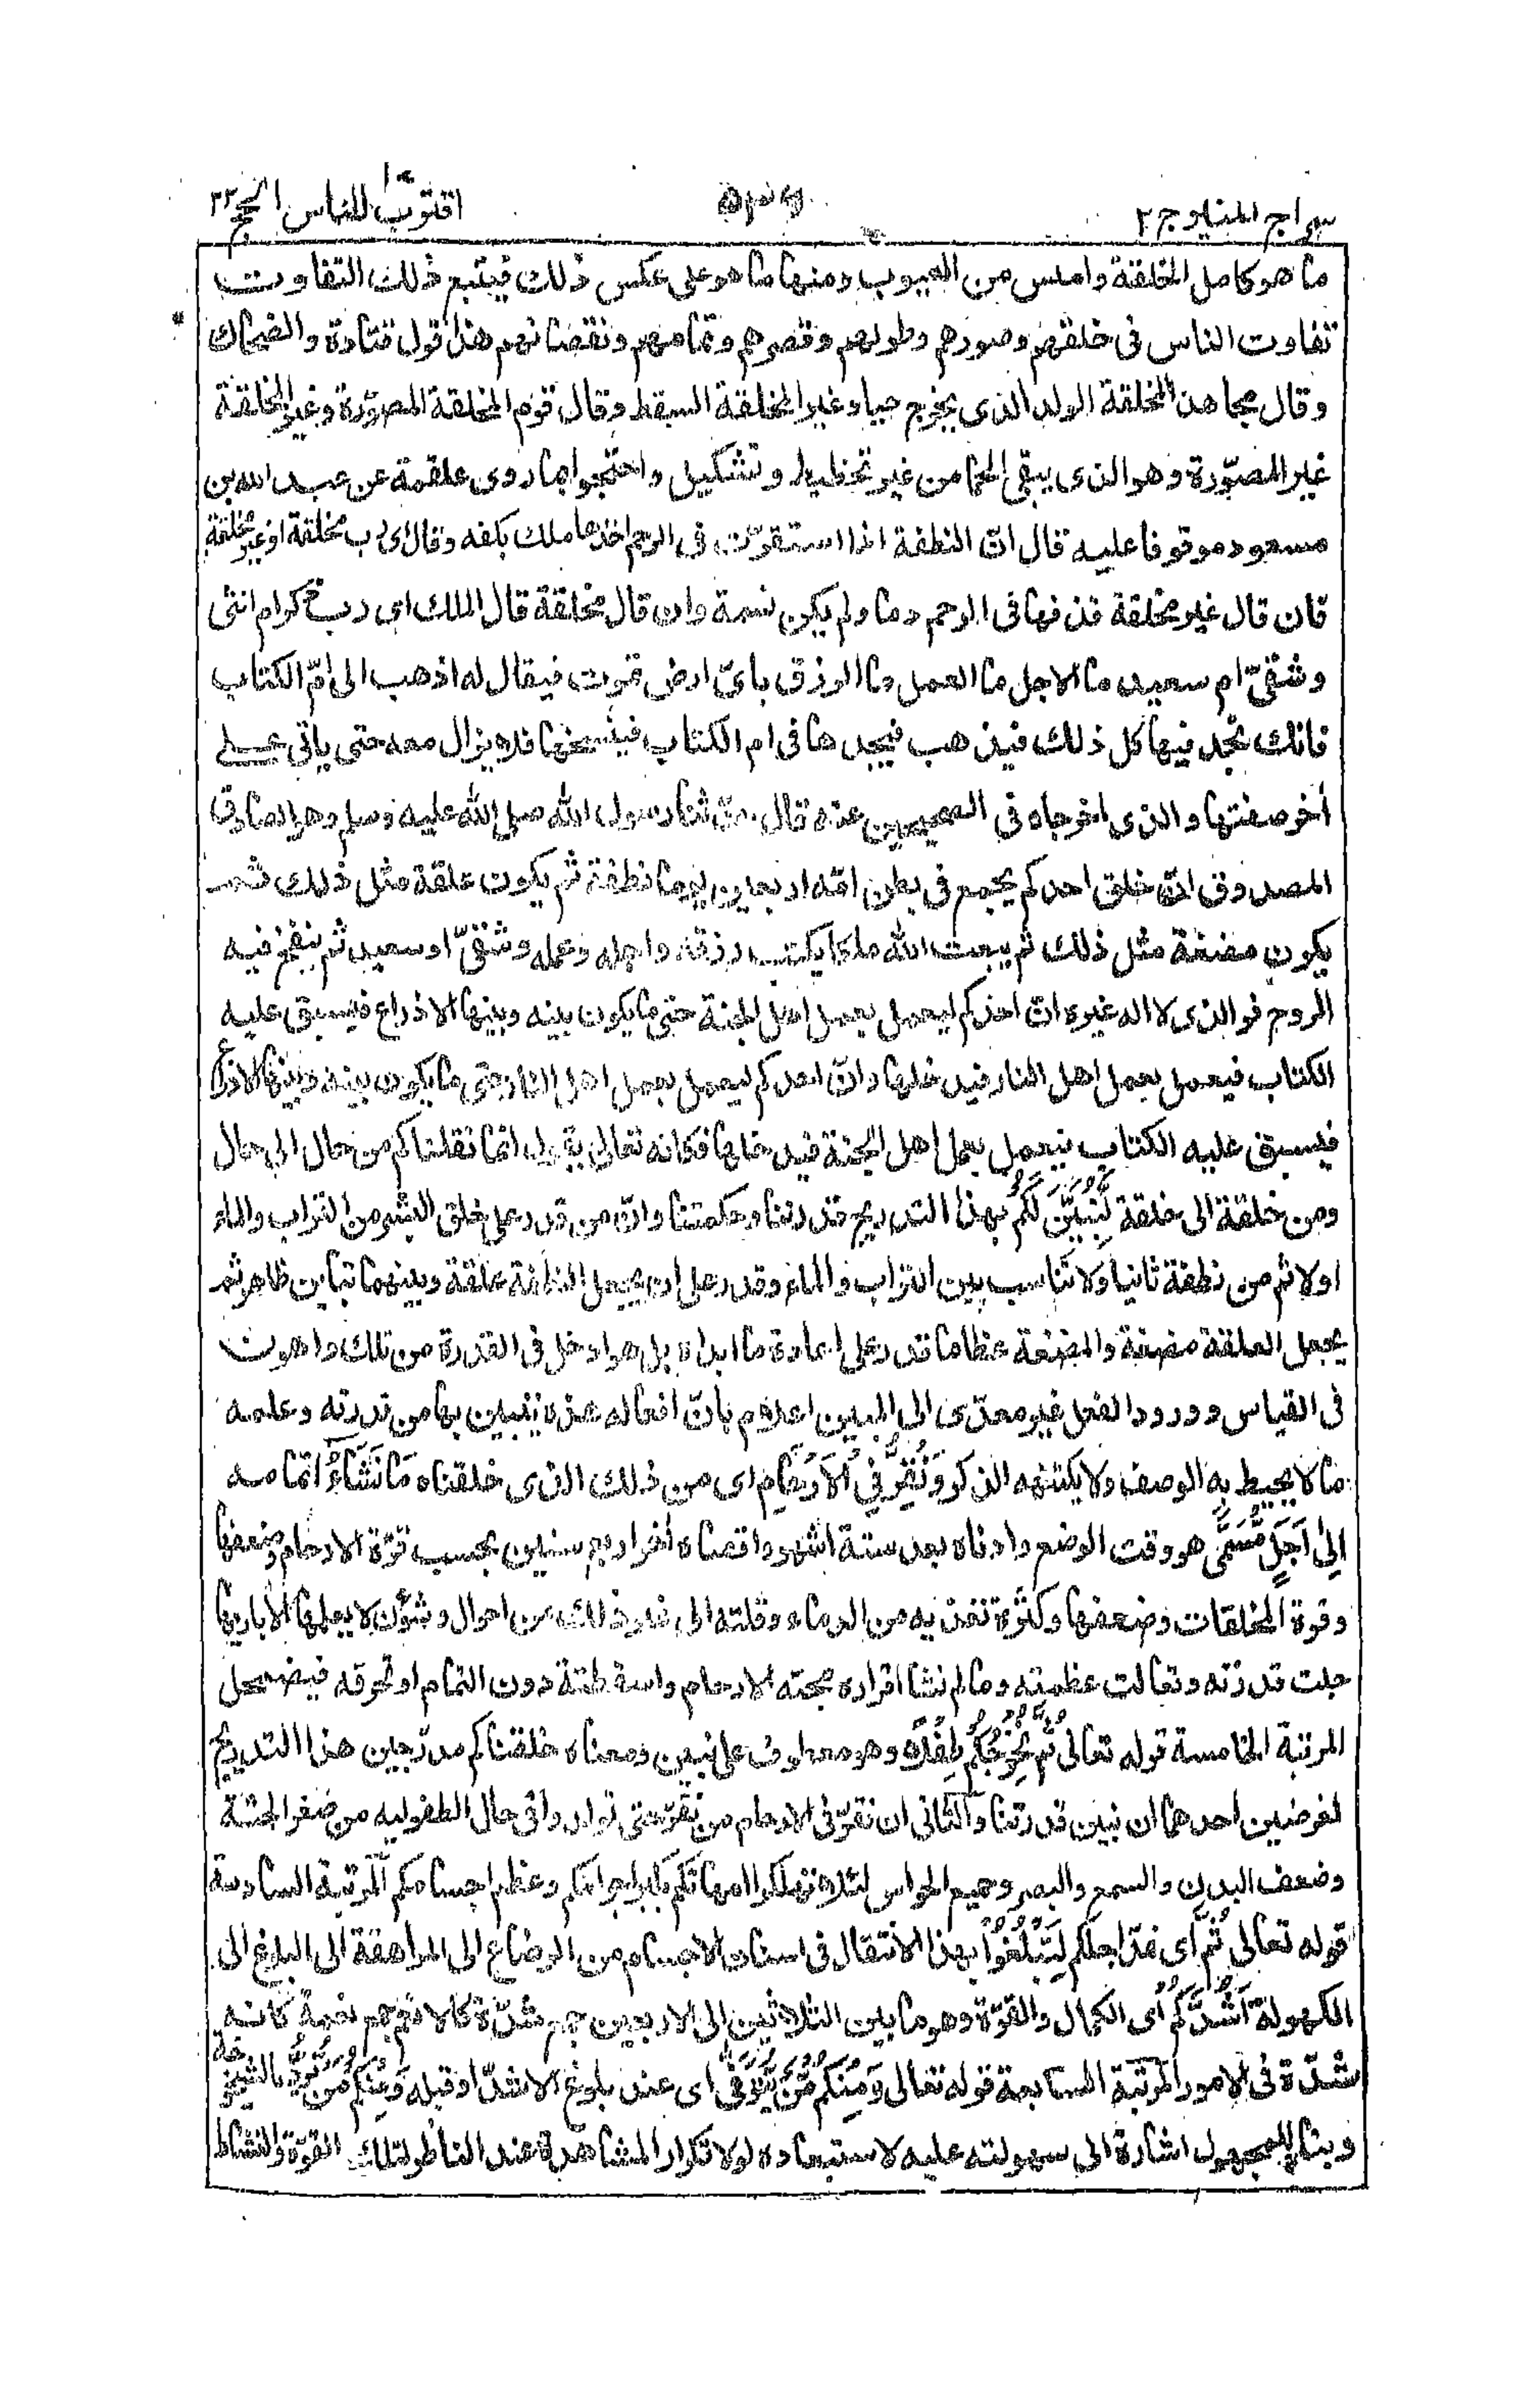 سراج المنير ج ٢
٥٣٦
اقترب للناس ١٧ الحج ٢٢
ما هو كامل الخلقة واملس من العيوب ومنها ما هو على عكس ذلك فيتبع ذلك التفاوت
تفاوت الناس فى خلقهم وصورهم وطولهم وقصرهم وتمامهم ونقصانهم هذا قول قتادة والضحاك
وقال مجاهد المخلقة الولد الذى يخرج حيا وغير المخلقة السقط وقال قوم المخلقة المصوّرة وغير المخلقة
غير المصوّرة وهو الذى يبقى لحما من غير تخطيط وتشكيل واحتجوا بما روى علقمة عن عبد الله بن
مسعود موقوفا عليه قال انّ النطفة اذا استقرّت فى الرحم اخذها ملك بكفه وقال اى رب مخلقة او غير مخلقة
فان قال غير مخلقة قذفها فى الرحم دما ولم يكن نسمة وان قال مخلقة قال الملك اى رب ذكر ام انثى
وشقىّ ام سعيد ما الاجل ما العمل ما الرزق باىّ ارض تموت فيقال له اذهب الى امّ الكتاب
فانك تجد فيها كل ذلك فيذهب فيجدها فى ام الكتاب فينسخها فلا يزال معه حتى ياتى على
أخر صفتها والذى اخرجاه فى الصحيحين عنه قال حدّثنا رسول الله صلى الله عليه وسلم وهو الصادق
المصدوق انّ خلق احدكم يجمع فى بطن امّه اربعين يوما نطفة ثم يكون علقة مثل ذلك ثم
يكون مضغة مثل ذلك ثم يبعث الله ملكا يكتب رزقه واجله وعمله وشقىّ او سعيد ثم ينفخ فيه
الروح فو الذى لا اله غيره انّ احدكم ليعمل بعمل اهل الجنة حتى ما يكون بينه وبينها الا ذراع فيسبق عليه
الكتاب فيعمل بعمل اهل النار فيدخلها وانّ احدكم ليعمل بعمل اهل النار حتى ما يكون بينه وبينها الا ذراع
فيسبق عليه الكتاب فيعمل بعمل اهل الجنة فيدخلها فكانه تعالى يقول انما نقلناكم من حال الى حال
ومن خلقة الى خلقة لِّنُبَيِّنَ لَكُمْ بهذا التدريج قدرتنا وحكمتنا وانّ من قدر على خلق البشر من التراب والماء
اولا ثم من نطفة ثانيا ولا تناسب بين التراب والماء وقدر على ان يجعل النطفة علقة وبينهما تباين ظاهر ثم
يجعل العلقة مضغة والمضغة عظاما قدر على اعادة ما ابداه بل هو ادخل فى القدرة من تلك واهون
فى القياس وورود الفعل غير معدّى الى المبين اعلام بانّ افعاله هذه يتبين بها من قدرته وعلمه
ما لا يحيط به الوصف ولا يكتنهه الذكر وَنُقِرُّ فِي الْأَرْحَامِ اى من ذلك الذى خلقناه مَا نَشَاءُ اتمامه
اِلىٰ اَجَلٍ مُّسَمًّى هو وقت الوضع وادناه بعد ستة اشهر واقصاه أخر اربع سنين بحسب قوّة الارحام وضعفها
وقوة المخلقات وضعفها وكثرة تغذيه من الدماء وقلته الى غير ذلك من احوال وشؤن لا يعلمها الا باريها
جلت قدرته وتعالت عظمته وما لم نشا اقراره مجته الارحام واسقطته دون التمام او تحرقه فيضمحل
المرتبة الخامسة قوله تعالى ثُمَّ نُخْرِجُكُمْ طِفْلًا وهو معطوف على نبين ومعناه خلقناكم مدرّجين هذا التدريج
لغرضين احدهما ان نبين قدرتنا والثانى ان نقرّ فى الارحام من نقرّ حتى تولدوا فى حال الطفولية من صغر الجثة
وضعف البدن والسمع والبصر وجميع الحواس لئلا تهلكوا امهاتكم بكبر اجرامكم وعظم اجسامكم المرتبة السادسة
قوله تعالى ثُمَّ اى نمدّ اجلكم لِتَبْلُغُوْا بهذا الانتقال فى اسنان الاجسام من الرضاع الى المراهقة الى البلوغ الى
الكهولة اَشُدَّكُمْ اى الكمال والقوّة وهو ما بين الثلاثين الى الاربعين جمع شدّة كالانعم جمع نعمة كانه
شدّة فى الامور المرتبة السابعة قوله تعالى وَمِنْكُمْ مَّنْ يُّتَوَفّٰى اى عند بلوغ الاشدّ او قبله وَمِنْكُمْ مَّنْ يُّرَدُّ بالشيخوخة
وبناه للمجهول اشارة الى سهولته عليه لاستبعاده لولا تكرار المشاهدة عند الناظر لتلك القوّة والنشاط